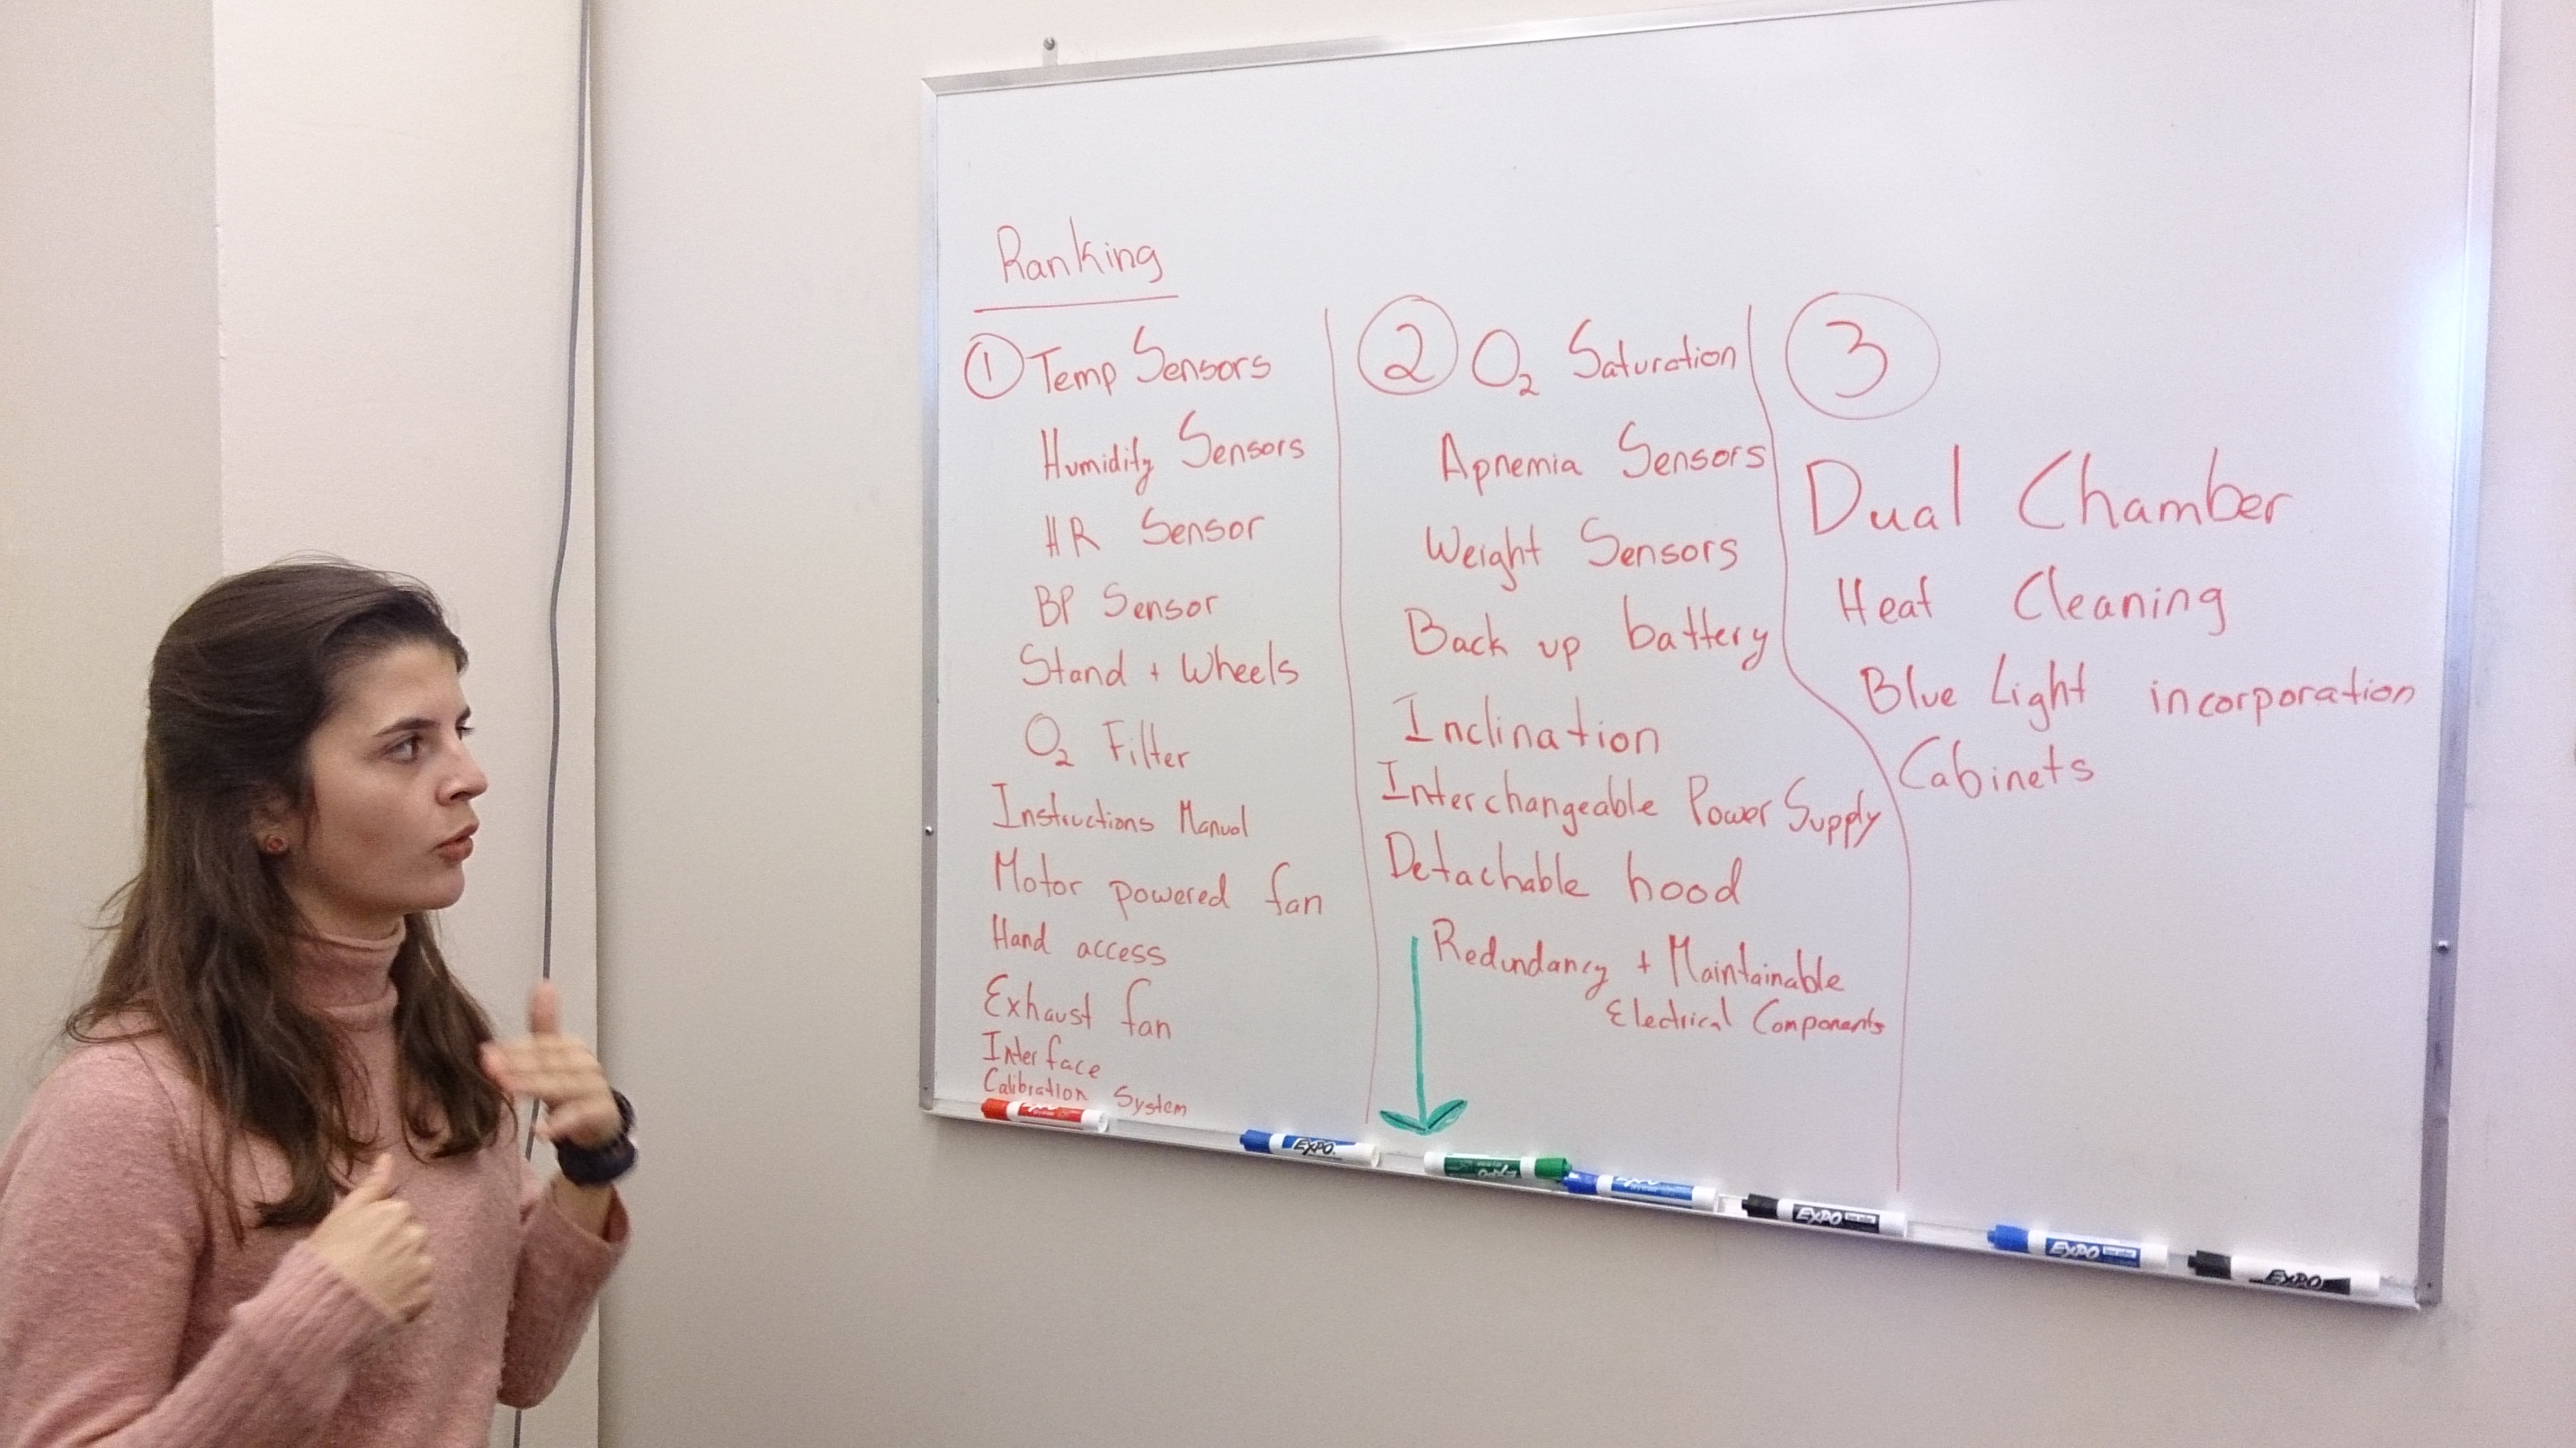 Ranking
① Temp Sensors
Humidity Sensors
HR Sensor
BP Sensor
Stand + Wheels
O₂ Filter
Instructions Manual
Motor powered fan
Hand access
Exhaust fan
Interface
Calibration System
② O₂ Saturation
Apnemia Sensors
Weight Sensors
Back up battery
Inclination
Interchangeable Power Supply
Detachable hood
Redundancy + Maintainable
Electrical Components
③
Dual Chamber
Heat Cleaning
Blue Light incorporation
Cabinets
EXPO
EXPO
EXPO
EXPO
EXPO